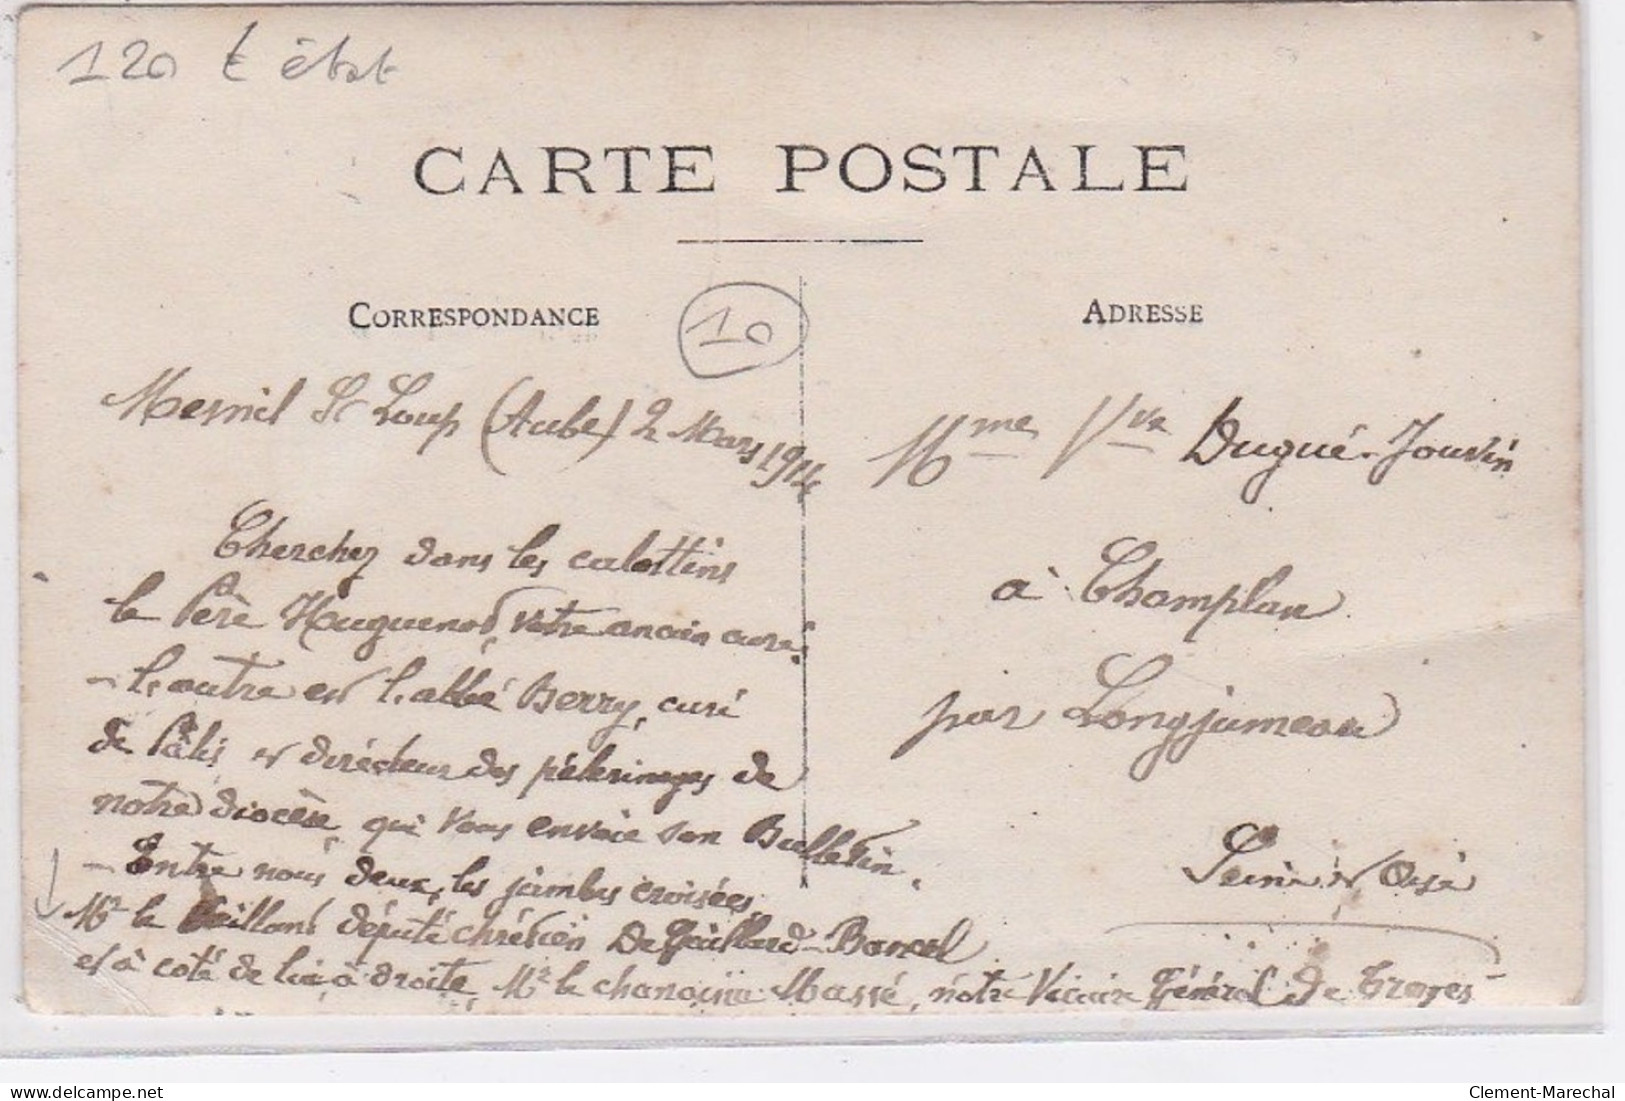 120 € état
CARTE POSTALE
CORRESPONDANCE
10
ADRESSE
Mesnil St Loup (Aube) 2 Mars 1914
Cherchez dans les calottins
le Père Huguenot, votre ancien curé.
- l'autre est l'abbé Berry, curé
de Pâlis et directeur des pélerinages de
notre diocèse, qui vous envoie son Bulletin.
- Entre nous deux, les jambes croisées,
Mr le vaillant député chrétien De Gaillard-Bancel
et à coté de lui à droite, Mr le chanoine Massé, notre Vicaire Général de Troyes
Mme Vve Dugué-Jouvin
à Champlan
par Longjumeau
Seine et Oise
Clement-Marechal
© delcampe.net